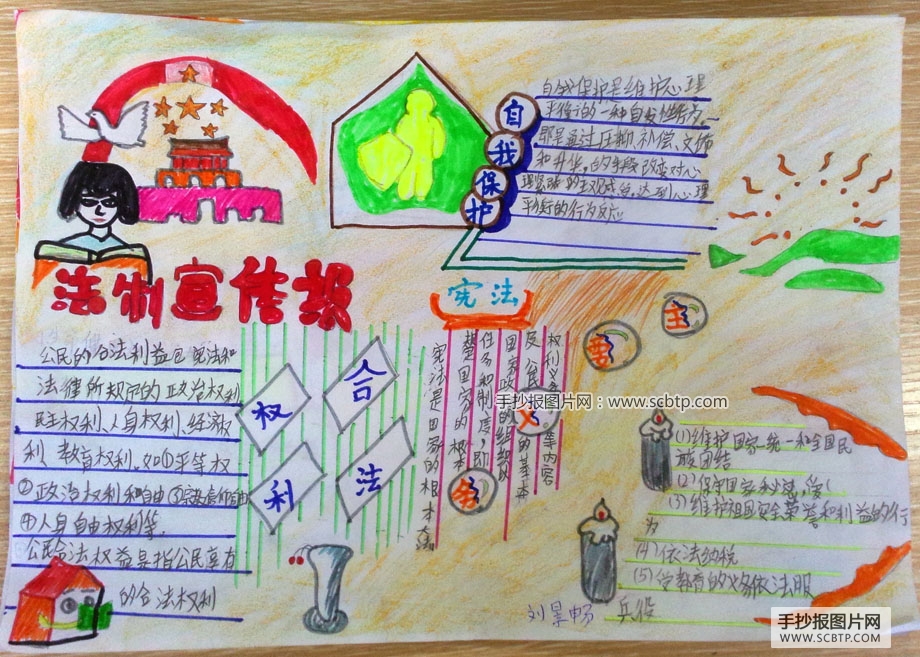 自我保护
自我保护是维护心理
平衡的一种自发性行为。
即是通过压抑、补偿、文饰
和升华,的手段改变对心
理紧张的主观感受,达到心理
平衡的行为反应
法制宣传报
公民的合法利益包 宪法和
法律所规定的政治权利
民主权利、人身权利、经济权
利、教育权利。如①平等权
②政治权利和自由③宗教信仰自由
④人身自由权利等.
公民合法权益是指公民享有
的合法权利
合
法
权
利
宪法
宪法是国家的根本大法
国家的根本
任务和制度,即
国家政
及公民的基本
权利义务等内容
主
要
义
务
手抄报图片网:www.scbtp.com
(1)维护国家统一和全国民
族团结
(2)保守国家秘密,
(3)维护祖国安全荣誉和利益的行
为
(4)依法纳税
(5)受教育的义务依法服
兵役
刘昊畅
手抄报图片网
WWW.SCBTP.COM